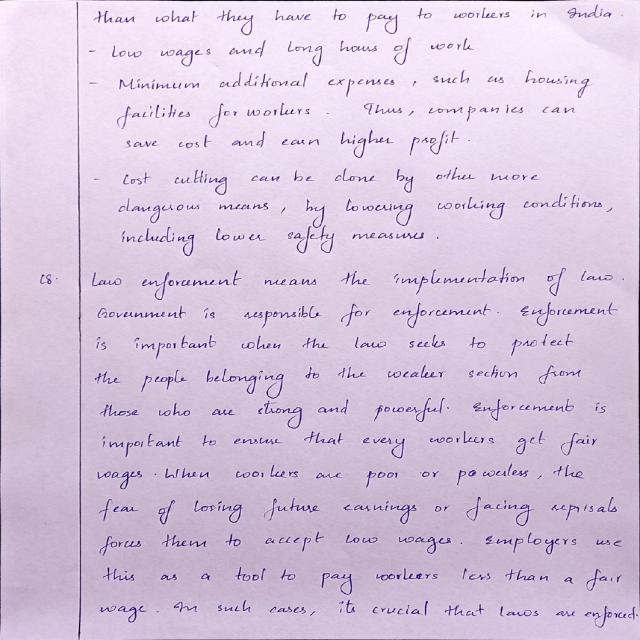 than what they have to pay to workers in India.
- Low wages and long hours of work
- Minimum additional expenses, such as housing
facilities for workers. Thus, companies can
save cost and earn higher profit.
- Cost cutting can be done by other more
dangerous means, by lowering working conditions,
including lower safety measures.
Law enforcement means the implementation of law.
Government is responsible for enforcement. Enforcement
is important when the law seeks to protect
the people belonging to the weaker section from
those who are strong and powerful. Enforcement is
important to ensure that every workers get fair
wages. When workers are poor or powerless, the
fear of losing future earnings or facing reprisals
forces them to accept low wages. Employers use
this as a tool to pay workers less than a fair
wage. In such cases, its crucial that laws are enforced.